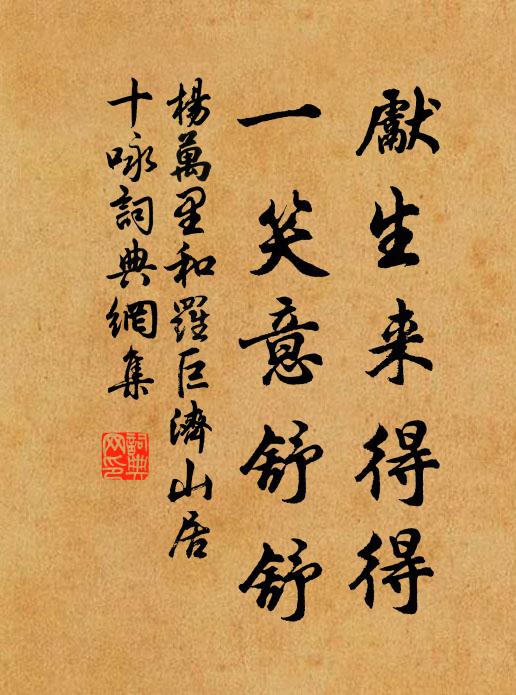 獻生来得得
一笑意舒舒
楊萬里和羅巨濟山居
十咏詞典網集
詞典网印